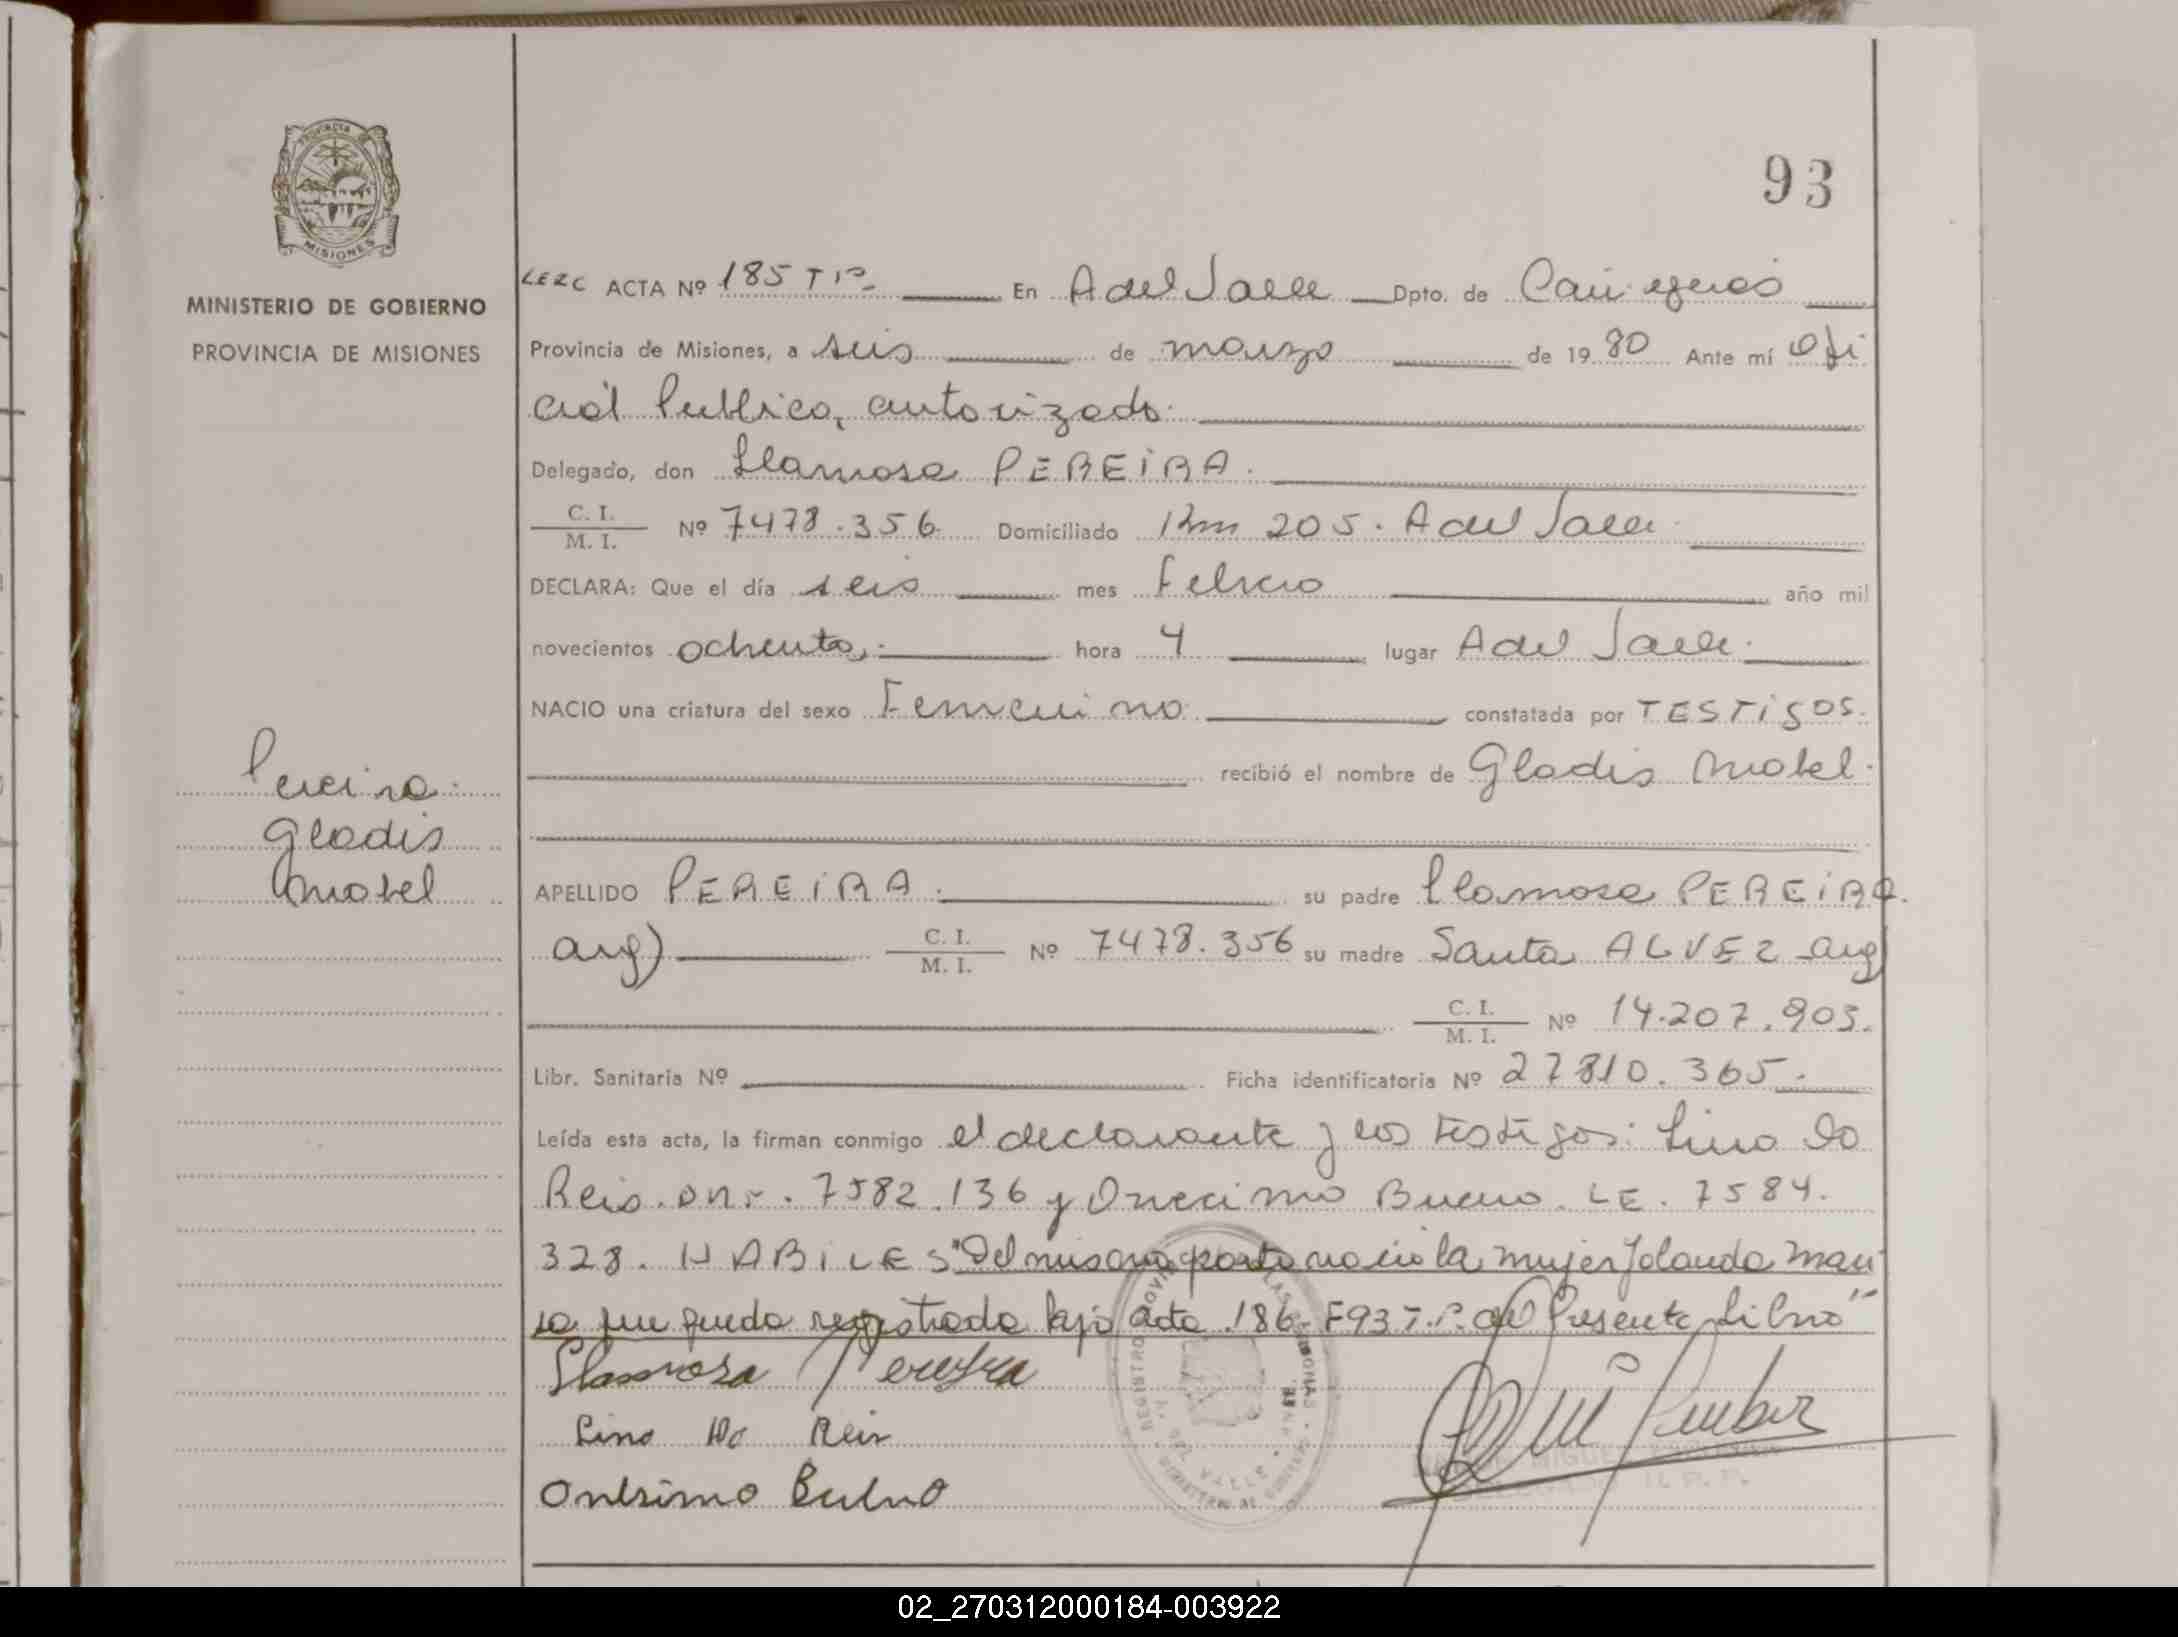 93
PROVINCIA DE
MISIONES
MINISTERIO DE GOBIERNO
PROVINCIA DE MISIONES
LERC ACTA Nº 185 Tº En A del Valle Dpto. de Cainguas
Provincia de Misiones, a seis de marzo de 19 80 Ante mí Ofi
cial Publico, autorizado.
Delegado, don Llamosa PEREIRA.
C. I. / M. I. Nº 7478.356 Domiciliado Km 205. A del Valle.
DECLARA: Que el día seis mes Febrero año mil
novecientos ochenta. hora 4 lugar A del Valle.
NACIO una criatura del sexo Femenino constatada por TESTIGOS.
recibió el nombre de Gladis Mabel.
Pereira.
Gladis
Mabel
APELLIDO PEREIRA. su padre Llamosa PEREIRA.
arg) C. I. / M. I. Nº 7478.356 su madre Santa ALVEZ arg)
C. I. / M. I. Nº 14.207.903.
Libr. Sanitaria Nº Ficha identificatoria Nº 27810.365.
Leída esta acta, la firman conmigo el declarante y los testigos: Lino Do
Reis. DNI. 7582.136 y Onecimo Bueno. LE. 7584.
328. HABILES "Del mismo parto nacio la mujer Yolanda Mari
sa que queda registrada bajo acta 186 F93 T.P. del Presente Libro"
Llamosa Pereira
Lino Do Reis
Onesimo Bueno
02_270312000184-003922